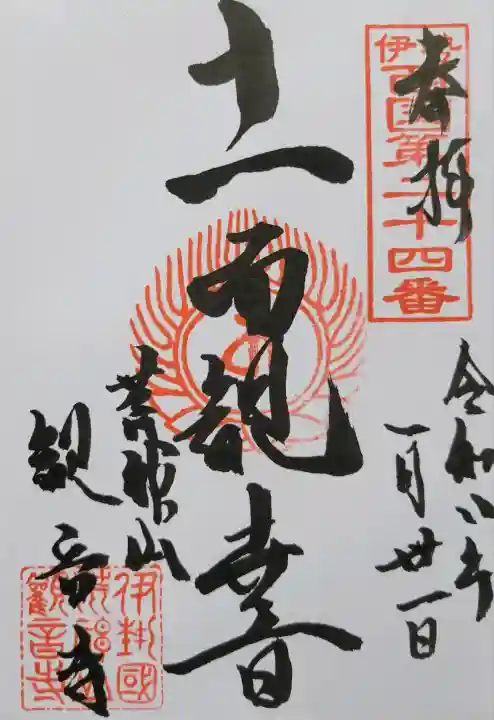 奉拝
伊勢西国第二十四番
令和 年
一月廿一日
十一面観音
荒神山
観音寺
伊勢國
觀音寺